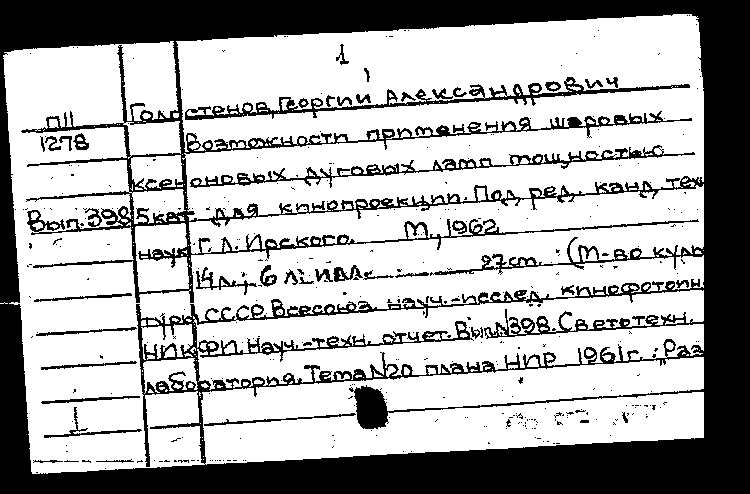 1
Голостенов, Георгий Александрович
П11
1278
Возможности применения шаровых
ксеноновых дуговых ламп мощностью
Вып. 398
5 квт. для кинопроекции. Под ред. канд. тех
наук Г. Л. Ирского. М., 1962
14 л.; 6 л. илл. 27 см. (М-во куль
туры СССР. Всесоюз. науч.-исслед. кинофотоин.
НИКФИ. Науч.-техн. отчет. Вып. № 398. Светотехн.
лаборатория. Тема № 20 плана НИР 1961 г.: „Раз
1